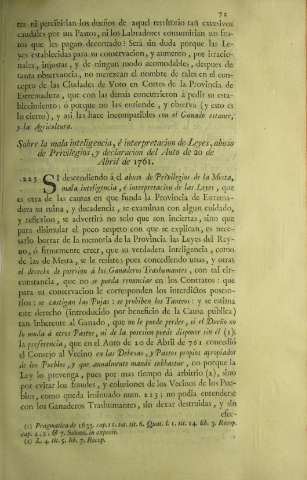 72
tes ni percibirian los dueños de aquel territorio tan excesivos
caudales por sus Pastos, ni los Labradores consumirian un fru-
tos que les pagan decontado? Será sin duda porque las Le-
yes establecidas para su conservacion, y aumento, por irracio-
nales, injustas, y de ningun modo acomodables, despues de
tanta observancia, no merezcan el nombre de tales en el con-
cepto de las Ciudades de Voto en Cortes de la Provincia de
Estremadura, que con las demás concurrieron á pedir su esta-
blecimiento; ó porque no las entiende, y observa (y esto es
lo cierto), y así las hace incompatibles con el Ganado estante,
y la Agricultura.
Sobre la mala inteligencia, é interpretacion de Leyes, abuso
de Privilegios, y declaracion del Auto de 20 de
Abril de 1761.
223 SI descendiendo á el abuso de Privilegios de la Mesta,
mala inteligencia, é interpretacion de las Leyes, que
es otra de las causas en que funda la Provincia de Estrema-
dura su ruina, y decadencia, se examinan con algun cuidado,
y reflexion, se advertirá no solo que son inciertas, sino que
para disimular el poco respeto con que se explican, es nece-
sario borrar de la memoria de la Provincia las Leyes del Rey-
no, ó firmemente creer, que su verdadera inteligencia, como
de las de Mesta, se le resiste; pues concediendo unas, y otras
el derecho de posesion á los Ganaderos Trashumantes, con tal cir-
cunstancia, que no se pueda renunciar en los Contratos: que
para su conservacion le corresponden los interdictos poseso-
rios: se castigan las Pujas: se prohiben los Tanteos: y se estima
este derecho (introducido por beneficio de la Causa pública)
tan inherente al Ganado, que no le puede perder, si el Dueño no
lo muda á otros Pastos, ni de la posesion puede disponer sin él (1);
la preferencia, que en el Auto de 20 de Abril de 761 concedió
el Consejo al Vecino en las Dehesas, y Pastos propios apropiados
de los Pueblos, y que anualmente mandó subhastar, no porque la
Ley lo prevenga, pues por mas tiempo dá arbitrio (2), sino
por evitar los fraudes, y colusiones de los Vecinos de los Pue-
blos, como queda insinuado num. 213; no podia entenderse
con los Ganaderos Trashumantes, sin dexar destruidas, y sin
efec-
(1) Pragmatica de 1633. cap. 11. tit. 6. Quat. l. 1. tit. 14. lib. 3. Recop.
cap. 2. 5. & 7. Salami. in exposit.
(2) L. 4. tit. 5. lib. 7. Recop.